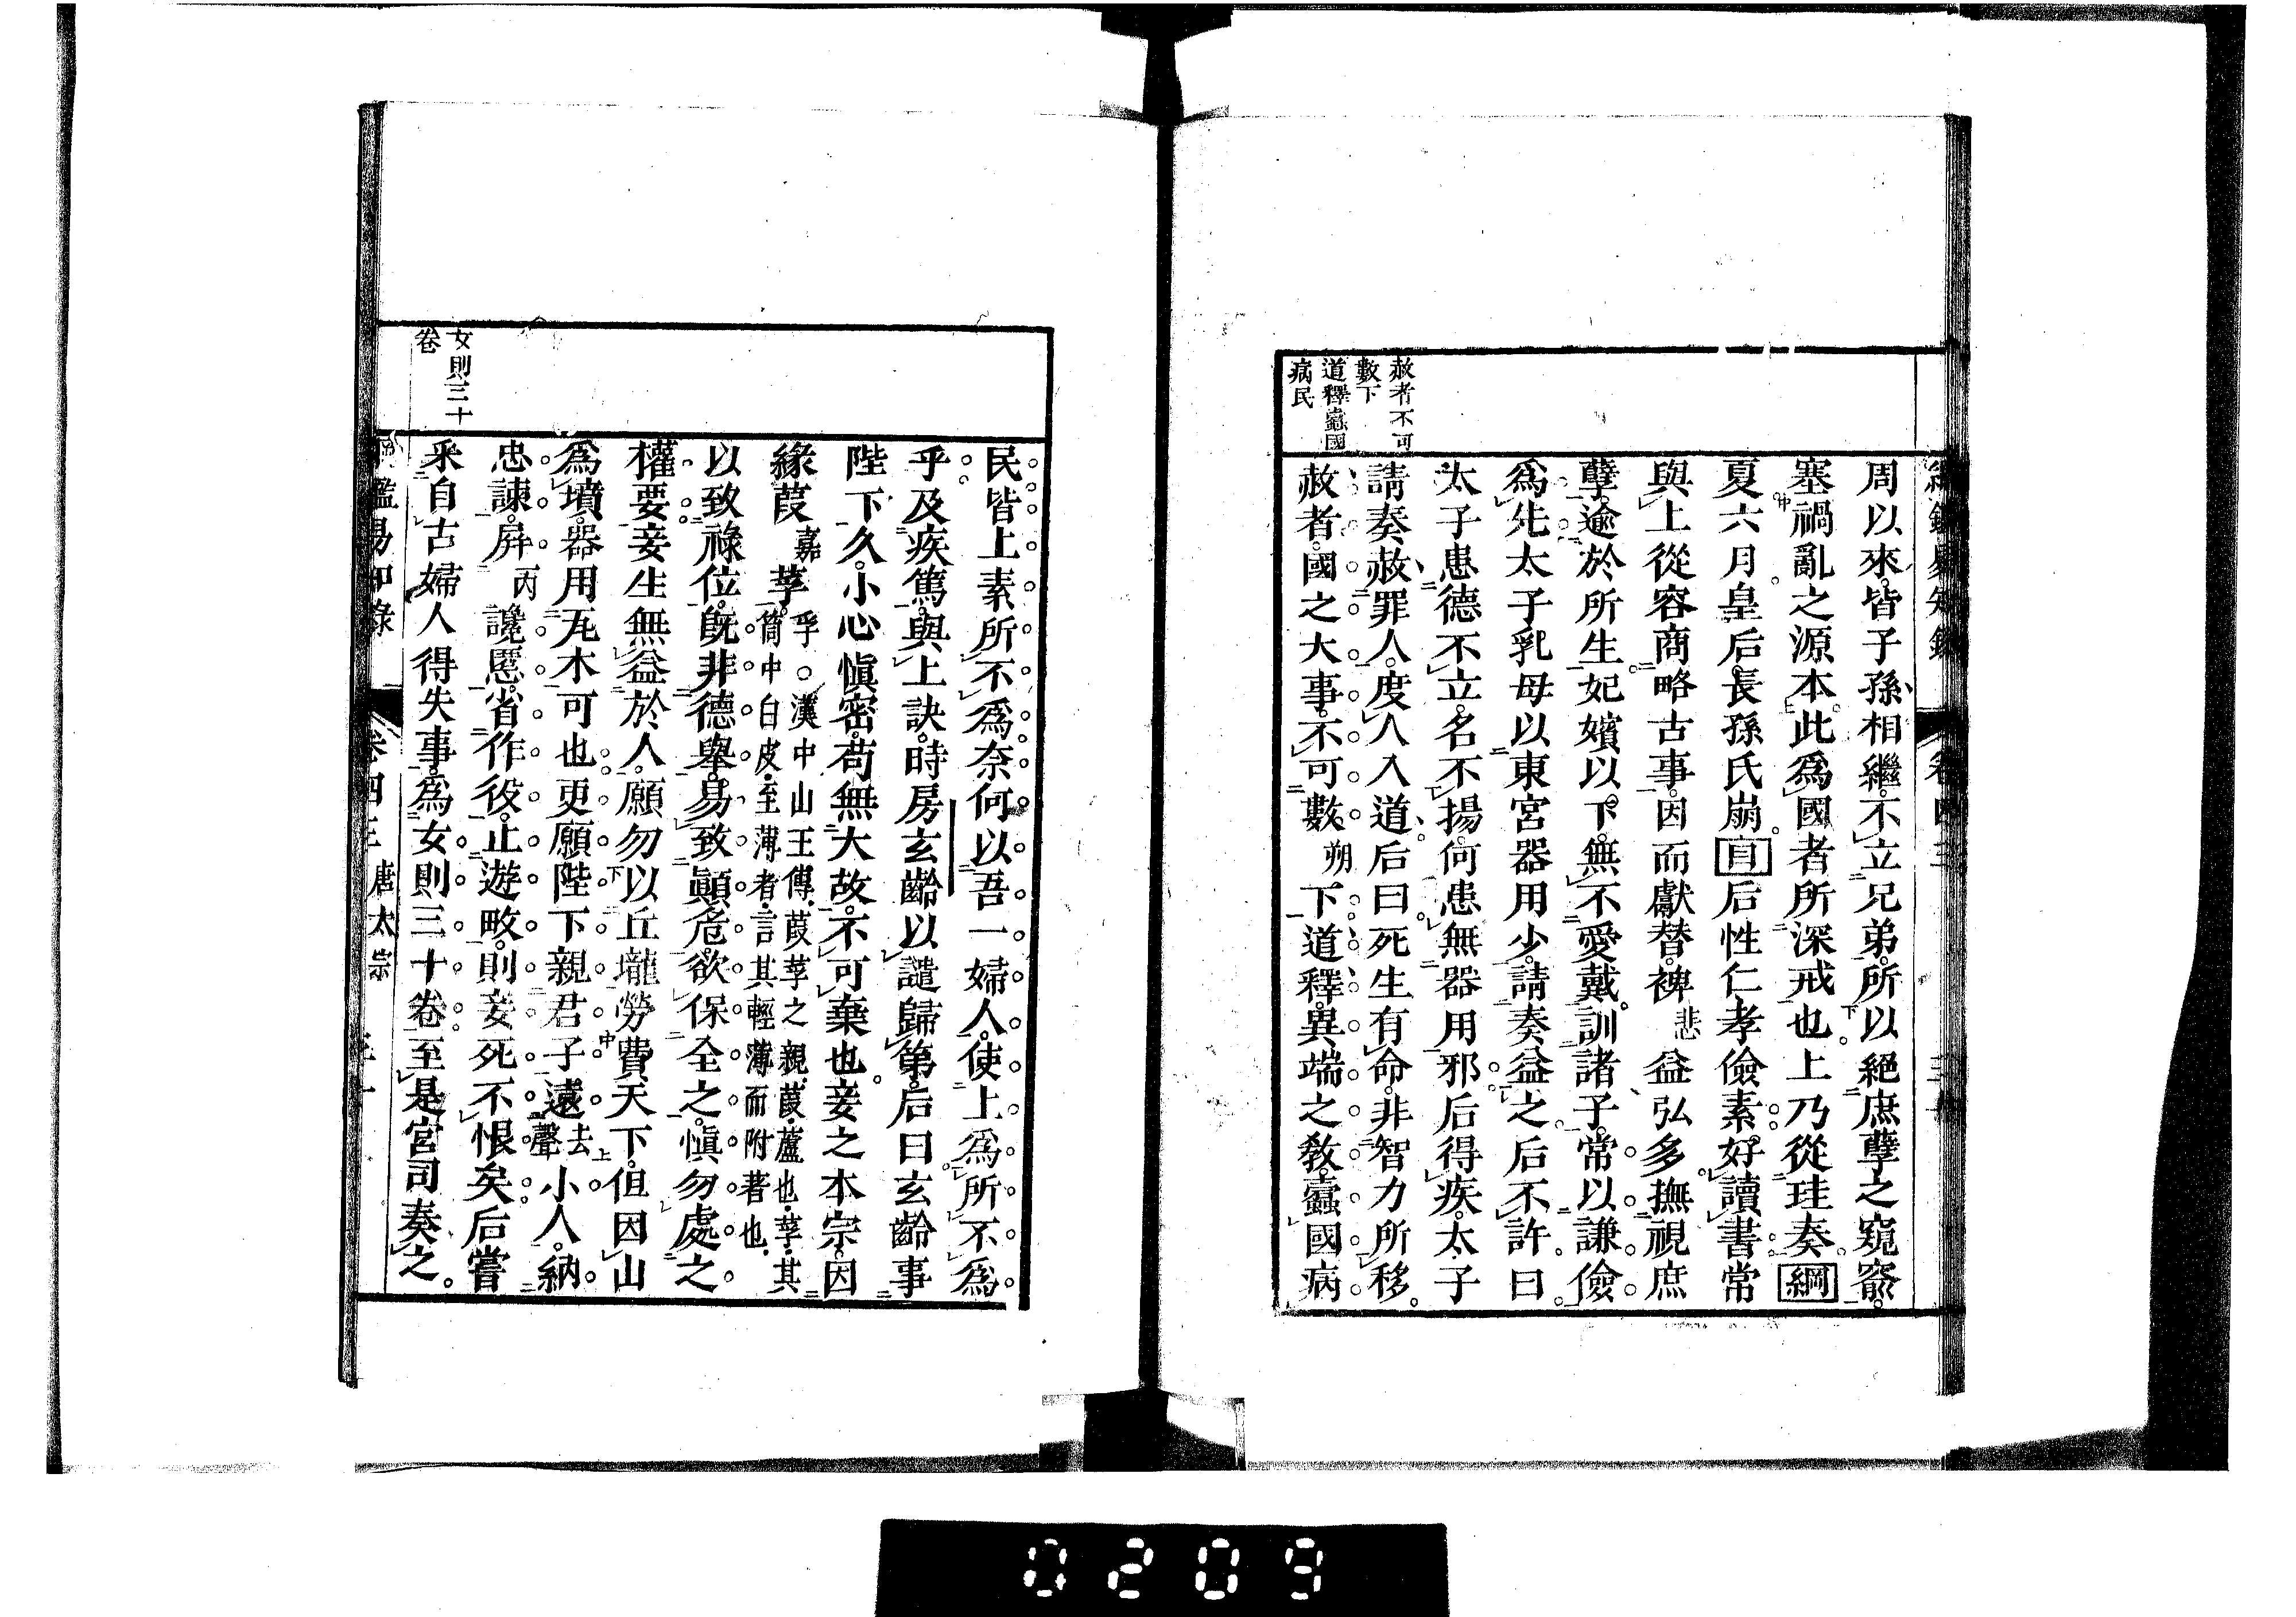 赦者不可
數下
道釋蠹國
病民
周以來皆子孫相繼不立兄弟所以絕庶孽之窺窬
塞禍亂之源本此爲國者所深戒也上乃從珪奏綱
夏六月皇后長孫氏崩目后性仁孝儉素好讀書常
與上從容商略古事因而獻替裨悲益弘多撫視庶
孽逾於所生妃嬪以下無不愛戴訓諸子常以謙儉
爲先太子乳母以東宮器用少請奏益之后不許曰
太子患德不立名不揚何患無器用邪后得疾太子
請奏赦罪人度人入道后曰死生有命非智力所移
赦者國之大事不可數朔下道釋異端之敎蠹國病
女則三十
卷
民皆上素所不爲奈何以吾一婦人使上爲所不爲
乎及疾篤與上訣時房玄齡以譴歸第后曰玄齡事
陛下久小心愼密苟無大故不可棄也妾之本宗因
緣葭嘉莩孚○漢中山王傳葭莩之親葭蘆也莩其
筩中白皮至薄者言其輕薄而附著也
以致祿位旣非德舉易致顚危欲保全之愼勿處之
權要妾生無益於人願勿以丘壠勞費天下但因山
爲墳器用瓦木可也更願陛下親君子遠去聲小人納
忠諫屛丙讒慝省作役止遊畋則妾死不恨矣后嘗
采自古婦人得失事爲女則三十卷至是宮司奏之
鑑易知錄 卷四三 唐太宗
0209